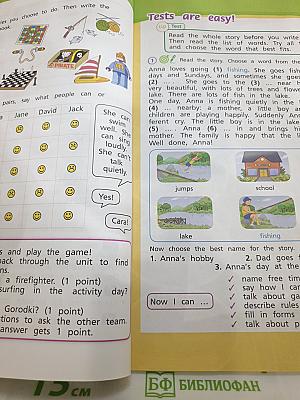 you choose to do. Then write the
book.
PIRATE
pairs, say what people can or
Jane David Jack
She can
swim
well. She
can sing
loudly.
She can't
talk
quietly.
Yes!
Cara!
s and play the game!
back through the unit to find
ns.
a firefighter. (1 point)
surfing in the activity day?
Gorodki? (1 point)
tions to ask the other team.
answer gets 1 point.
Tests are easy!
Test
Read the whole story before you write
Then read the list of words. Try all
and choose the word that best fits.
1 Read the story. Choose a word from the
Anna loves going (1) fishing. She goes fish
days and Sundays, and sometimes she goes
(2) .... She goes to the (3) ... near h
very beautiful, with lots of trees and flowe
lake. There are lots of fish in the lake.
One day, Anna is fishing quietly in the
(4) .... nearby a mother, a little boy an
children are playing happily. Suddenly Ann
ferent cry. The little boy is in the lake
(5) .... Anna (6) ... in and brings hi
mother. The family is happy that the li
Well done, Anna!
jumps
school
lake
fishing
Now choose the best name for the story.
1. Anna's hobby 2. Dad goes f
3. Anna's day at the
Now I can ...
✓ name free tim
✓ say how I can
✓ talk about ga
✓ describe rules
✓ fill in forms
✓ talk about p
15 см
БФ БИБЛИОФАН